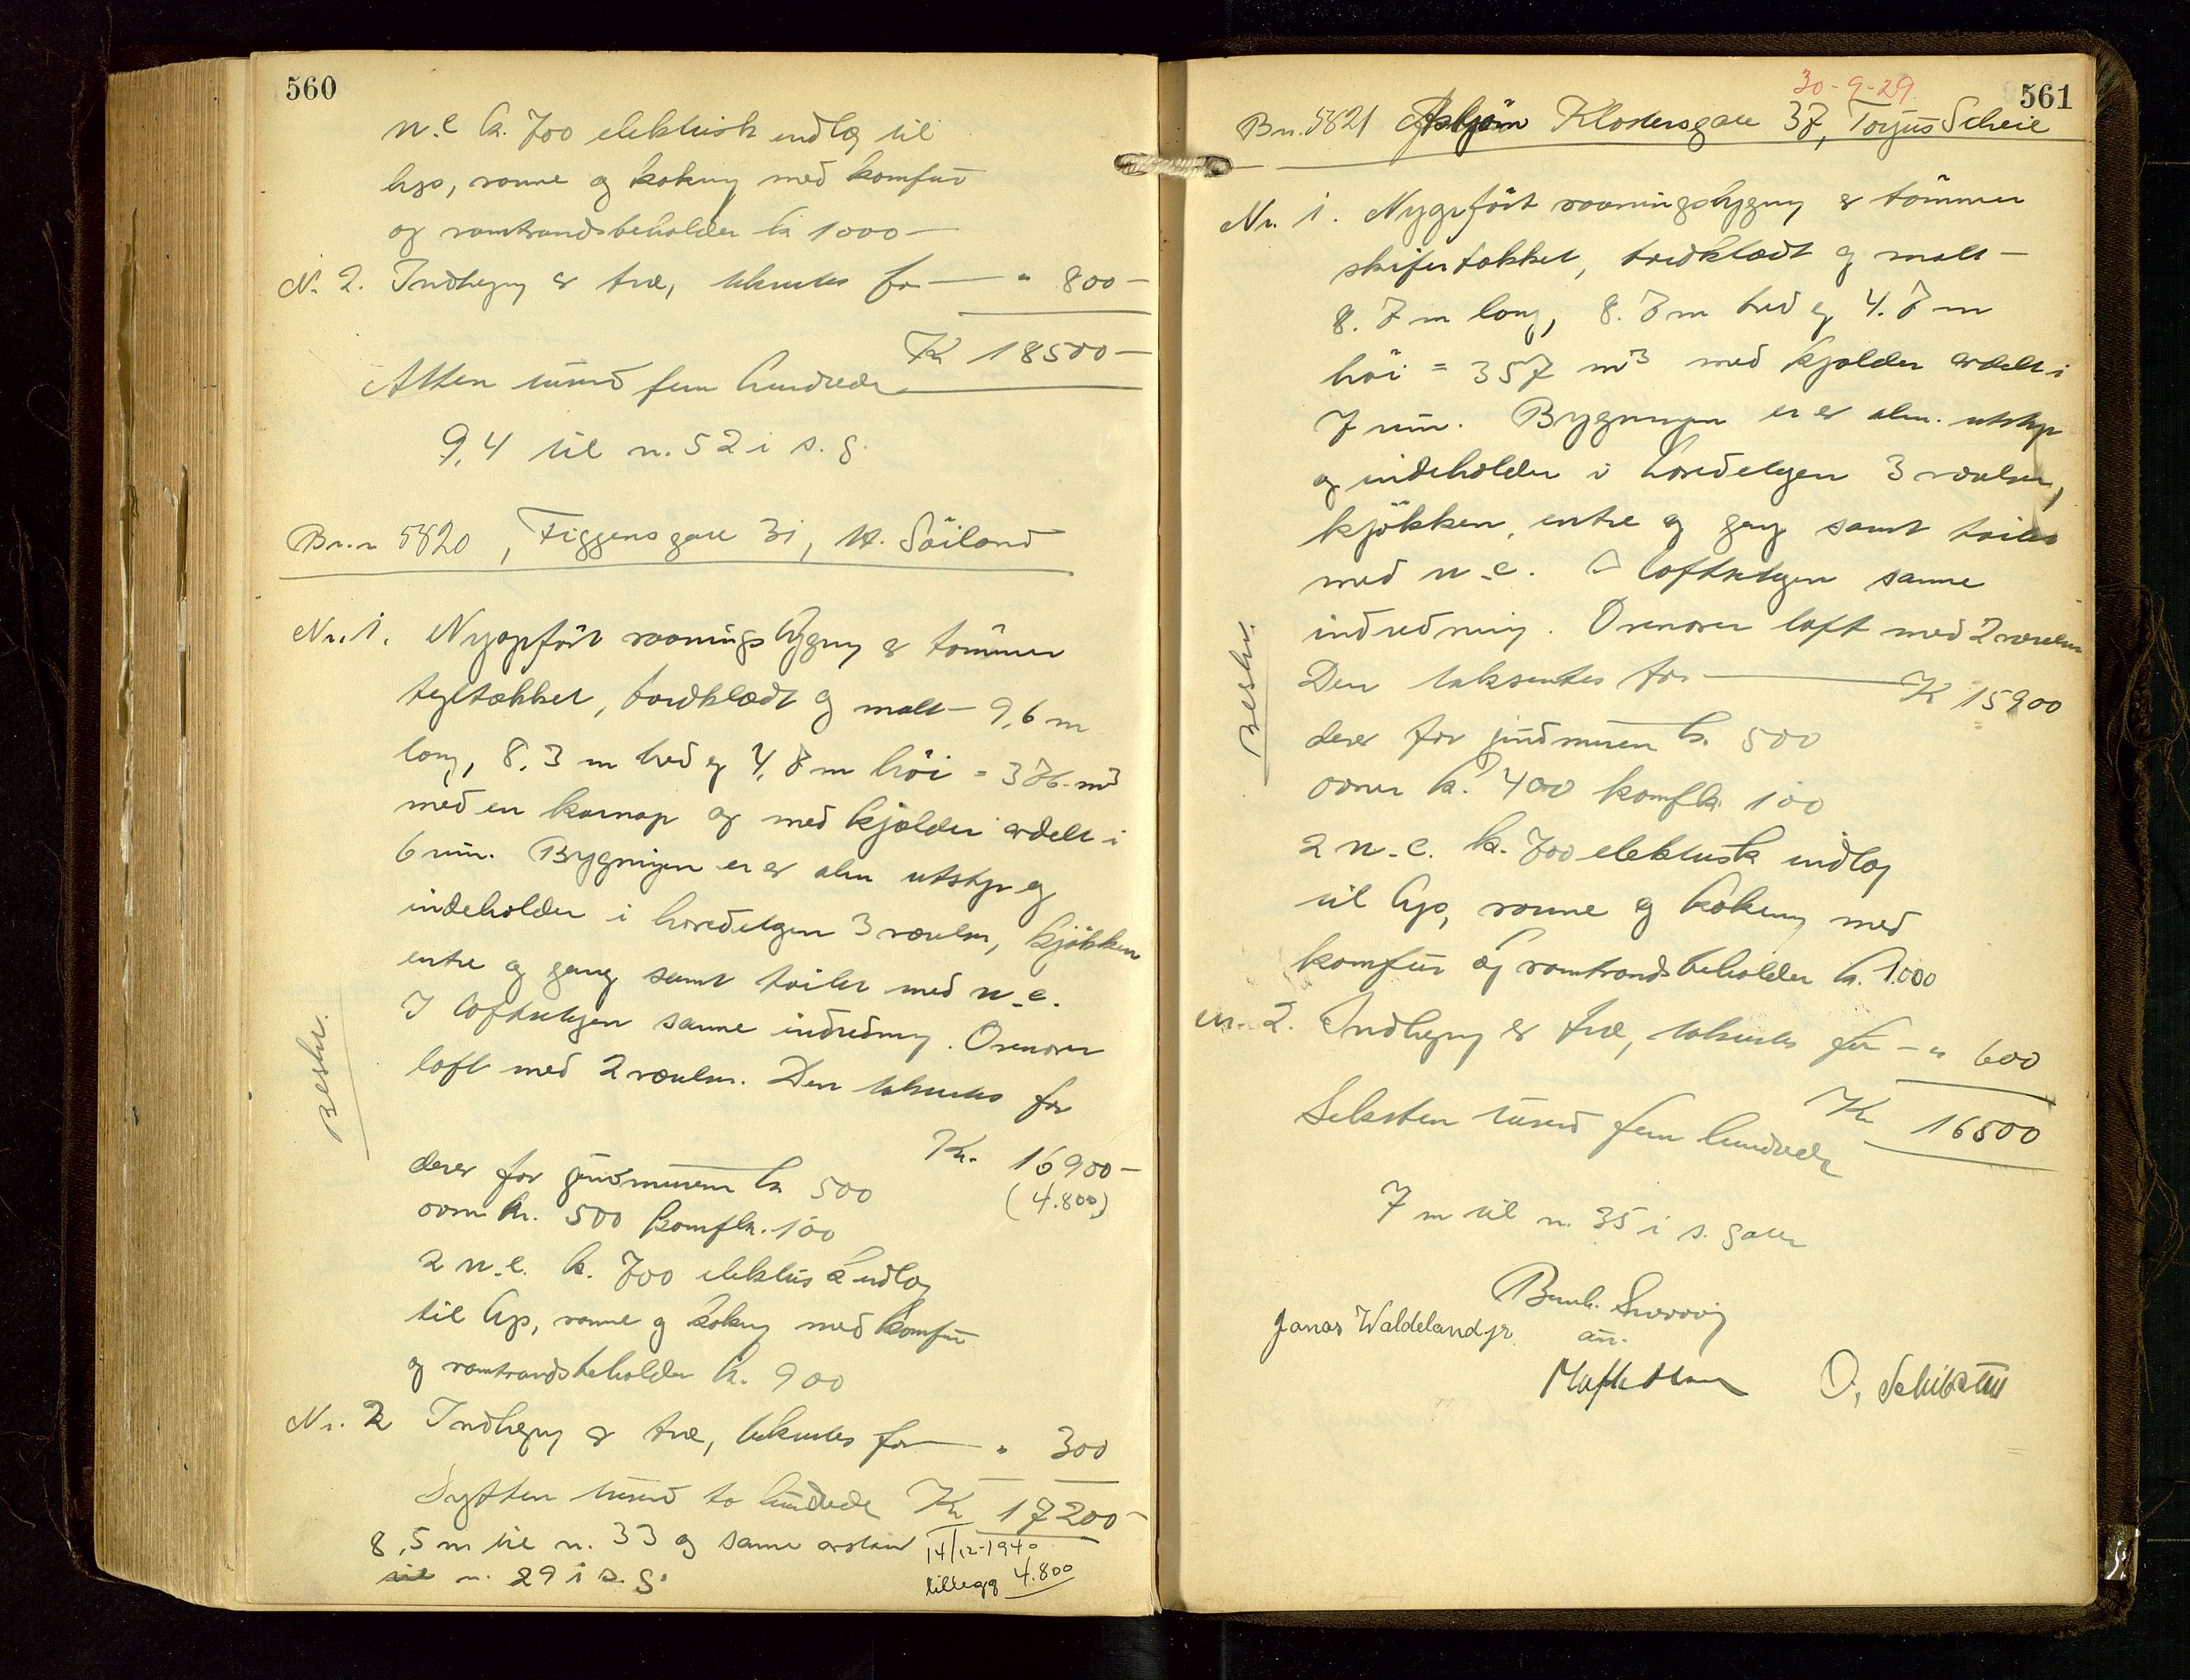 560
w.c. kr. 700 elektrisk indlæg til
lys, varme og kokning med komfur
og varmtvandsbeholder kr 1000 —
Nr. 2. Indhegning av træ, takseres for — " 800 —
Kr 18500 —
Atten tusind fem hundrede
9,4 til nr. 52 i s. g.
Br.nr 5820, Figgensgate 31, H. Söiland
Nr. 1. Nyopfört vaaningsbygning av tömmer
tegltækket, bordklædt og malt — 9,6 m
lang, 8,3 m bred og 4,8 m höi = 376 m³
med en karnap og med kjælder avdelt i
6 rum. Bygningen er av alm utstyr og
indeholder i hovedetagen 3 værelser, kjökken
entre og gang samt toilet med w.c.
I loftsetagen samme indredning. Ovenover
loft med 2 værelser. Den takseres for
Kr. 16900 —
(4.800)
derav for grundmuren kr 500
ovner kr. 500 komf kr. 100
2 w.c. kr. 700 elektrisk indlæg
til lys, varme og kokning med komfur
og varmtvandsbeholder kr. 900
Nr. 2 Indhegning av træ, takseres for — " 300
Sytten tusind to hundrede Kr 17200 —
8,5 m til nr. 33 og samme avstand
til nr. 29 i s. g.
14/12-1940
tillegg 4.800
Beskr.
30-9-29
561
Br.nr. 5821 Asbjörn Klostersgate 37, Torjus Scheie
Nr. 1. Nyopfört vaaningsbygning av tömmer
skifertækket, bordklædt og malt —
8.7 m lang, 8.7 m bred og 4.7 m
höi = 357 m³ med kjælder avdelt i
7 rum. Bygningen er av alm. utstyr
og indeholder i hovedetagen 3 værelser,
kjökken, entre og gang samt toilet
med w.c. I loftsetagen samme
indredning. Ovenover loft med 2 værelser
Den takseres for — Kr 15900
derav for grundmuren kr. 500
ovner kr. 400 komf kr. 100
2 w.c. kr. 700 elektrisk indlæg
til lys, varme og kokning med
komfur og varmtvandsbeholder kr. 1.000
Nr. 2. Indhegning av træ, takseres for — " 600
Kr 16500
Seksten tusind fem hundrede
7 m til nr. 35 i s. gate
Beskr.
Jonas Waldeland jr.
O. Schibstui